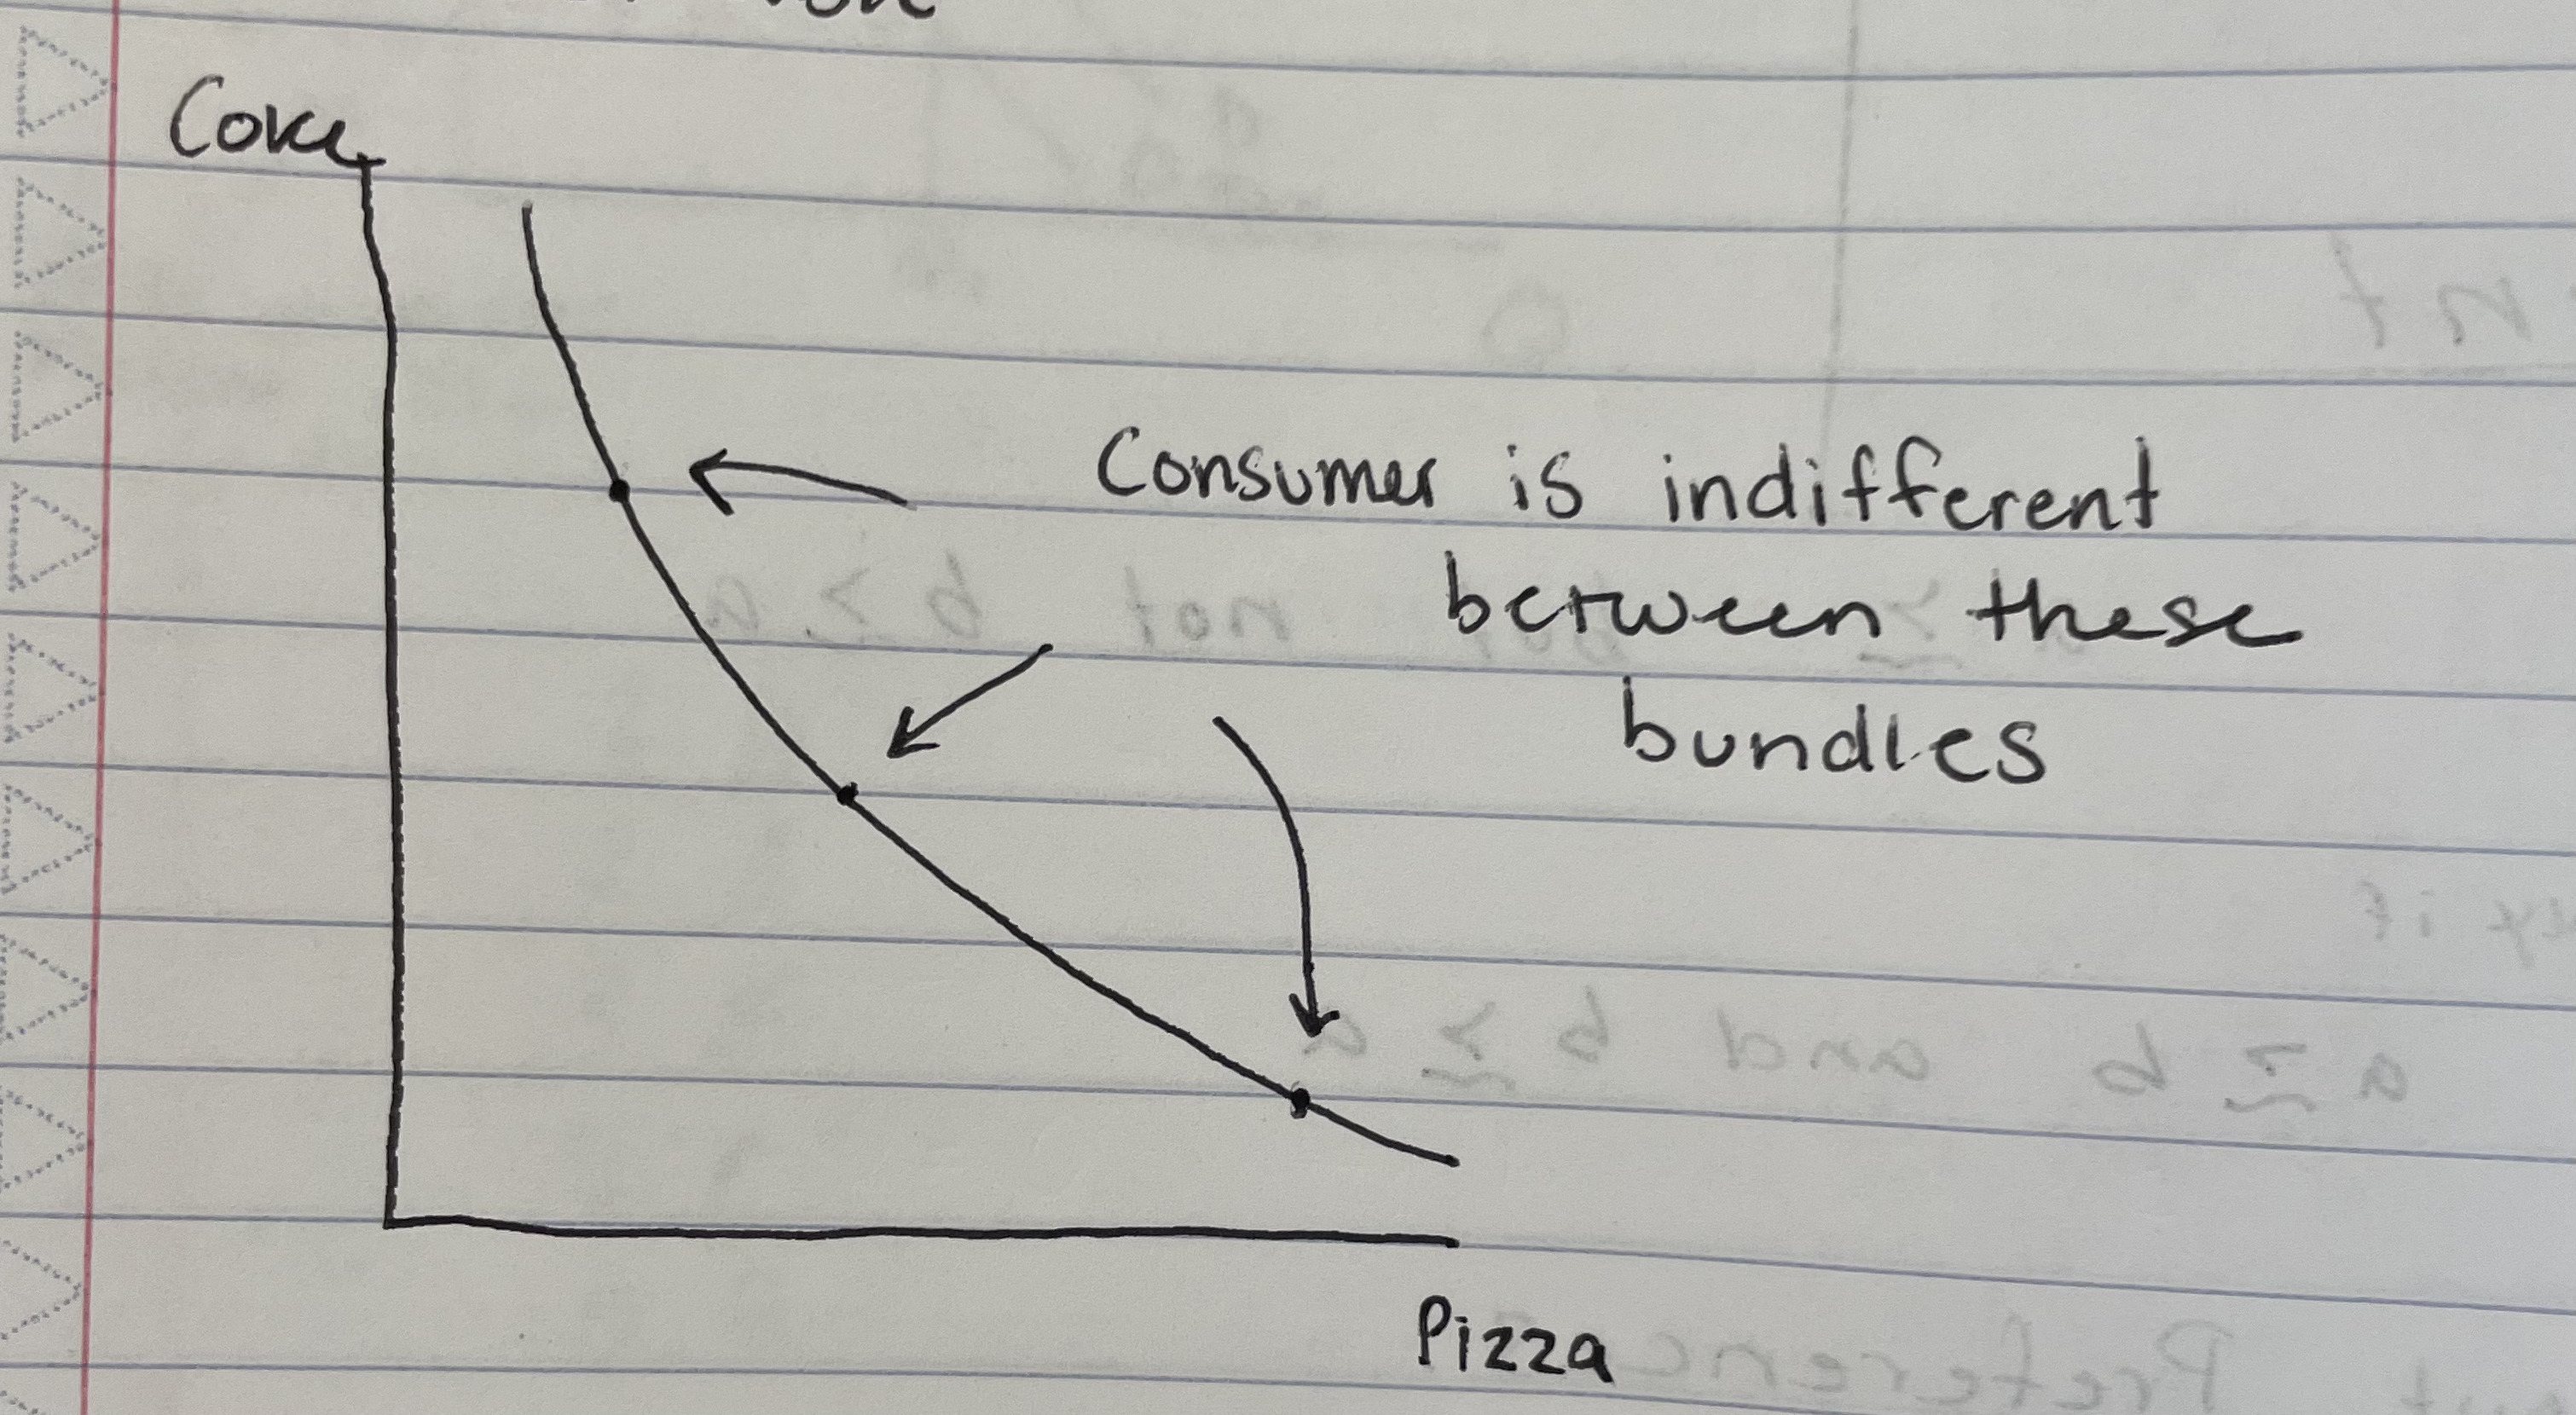 Coke
Consumer is indifferent
between these
bundles
Pizza